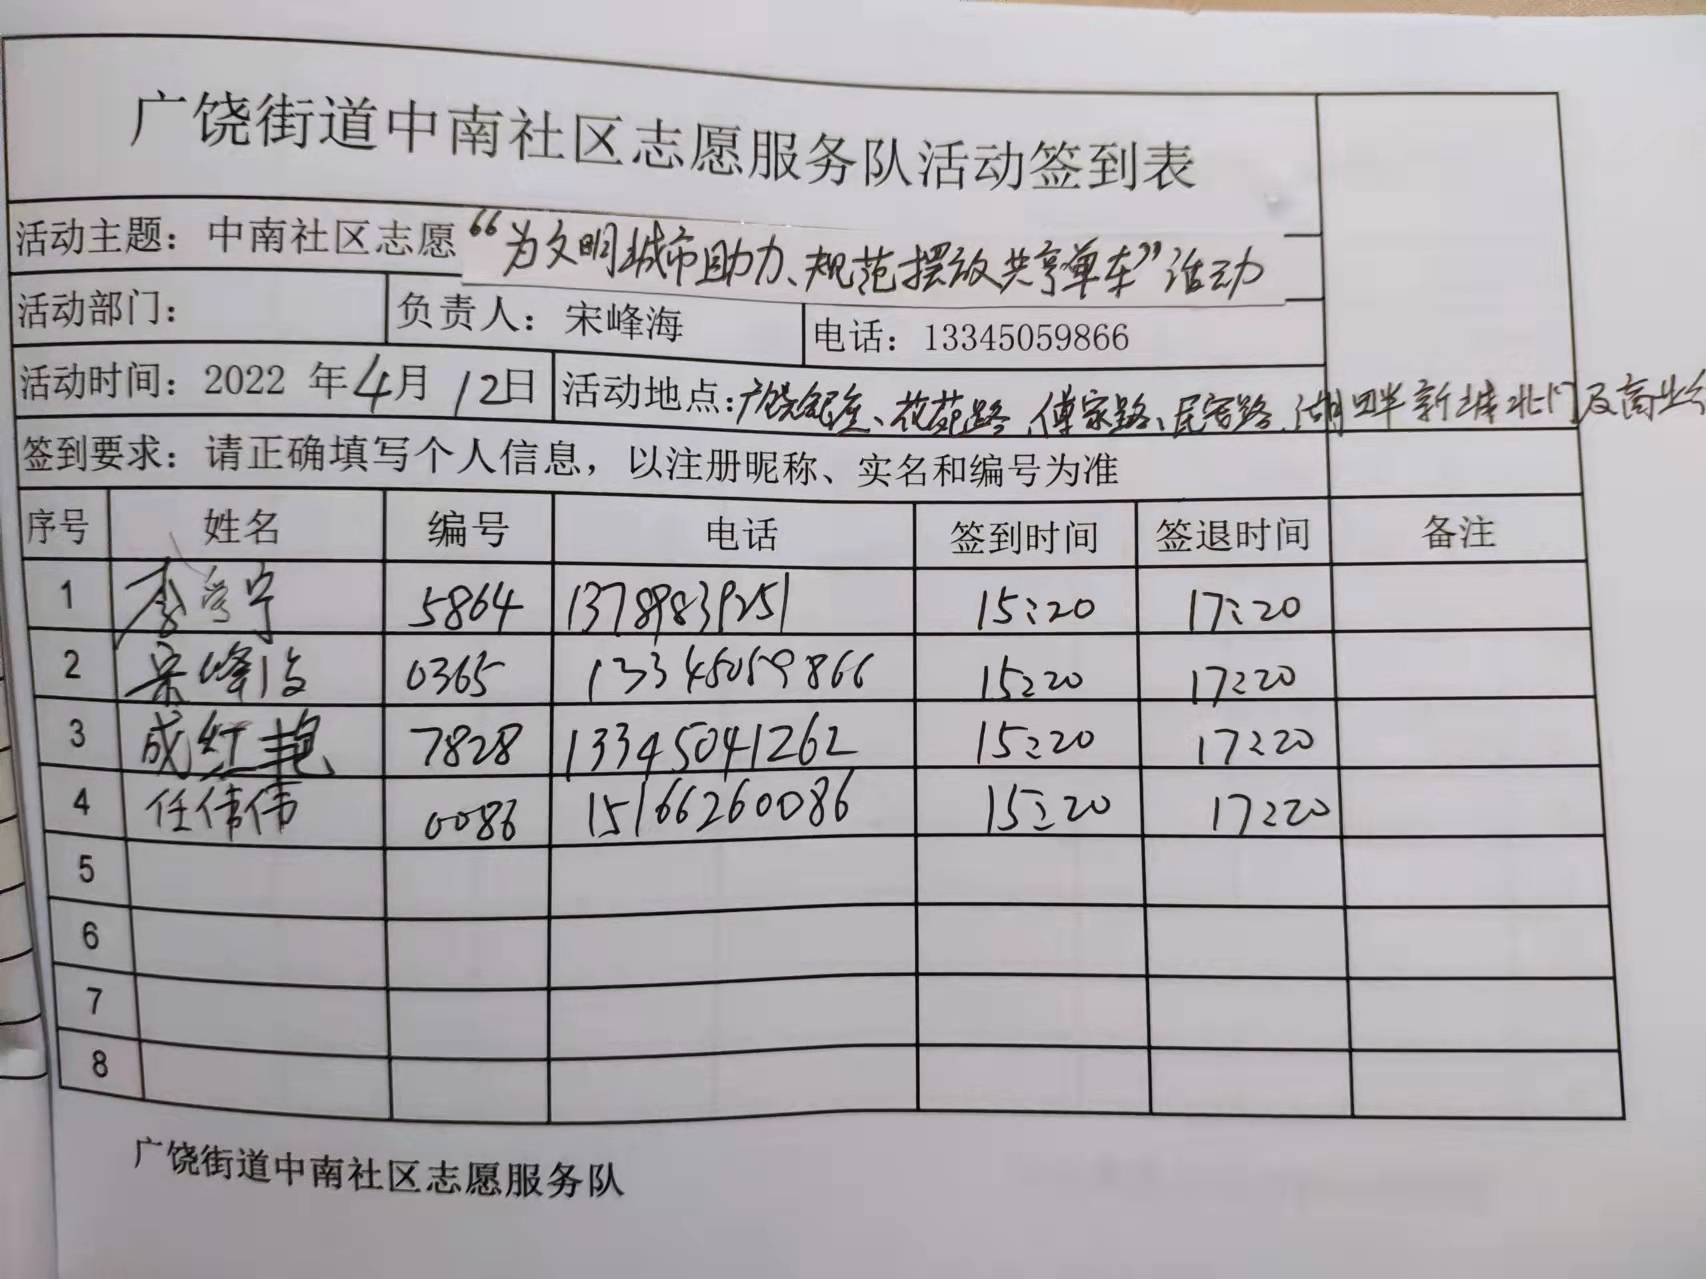 广饶街道中南社区志愿服务队活动签到表
活动主题：中南社区志愿“为文明城市助力、规范摆放共享单车”活动
活动部门： 负责人：宋峰海 电话：13345059866
活动时间：2022 年4月 12日 活动地点：广饶 花苑路、傅家路、民安路、湖畔新城北门及商业
签到要求：请正确填写个人信息，以注册昵称、实名和编号为准
序号 姓名 编号 电话 签到时间 签退时间 备注
1 李学宁 5864 13789839251 15:20 17:20
2 宋峰海 0365 13345059866 15:20 17:20
3 成红艳 7828 13345041262 15:20 17:20
4 任伟伟 0086 15166260086 15:20 17:20
5
6
7
8
广饶街道中南社区志愿服务队